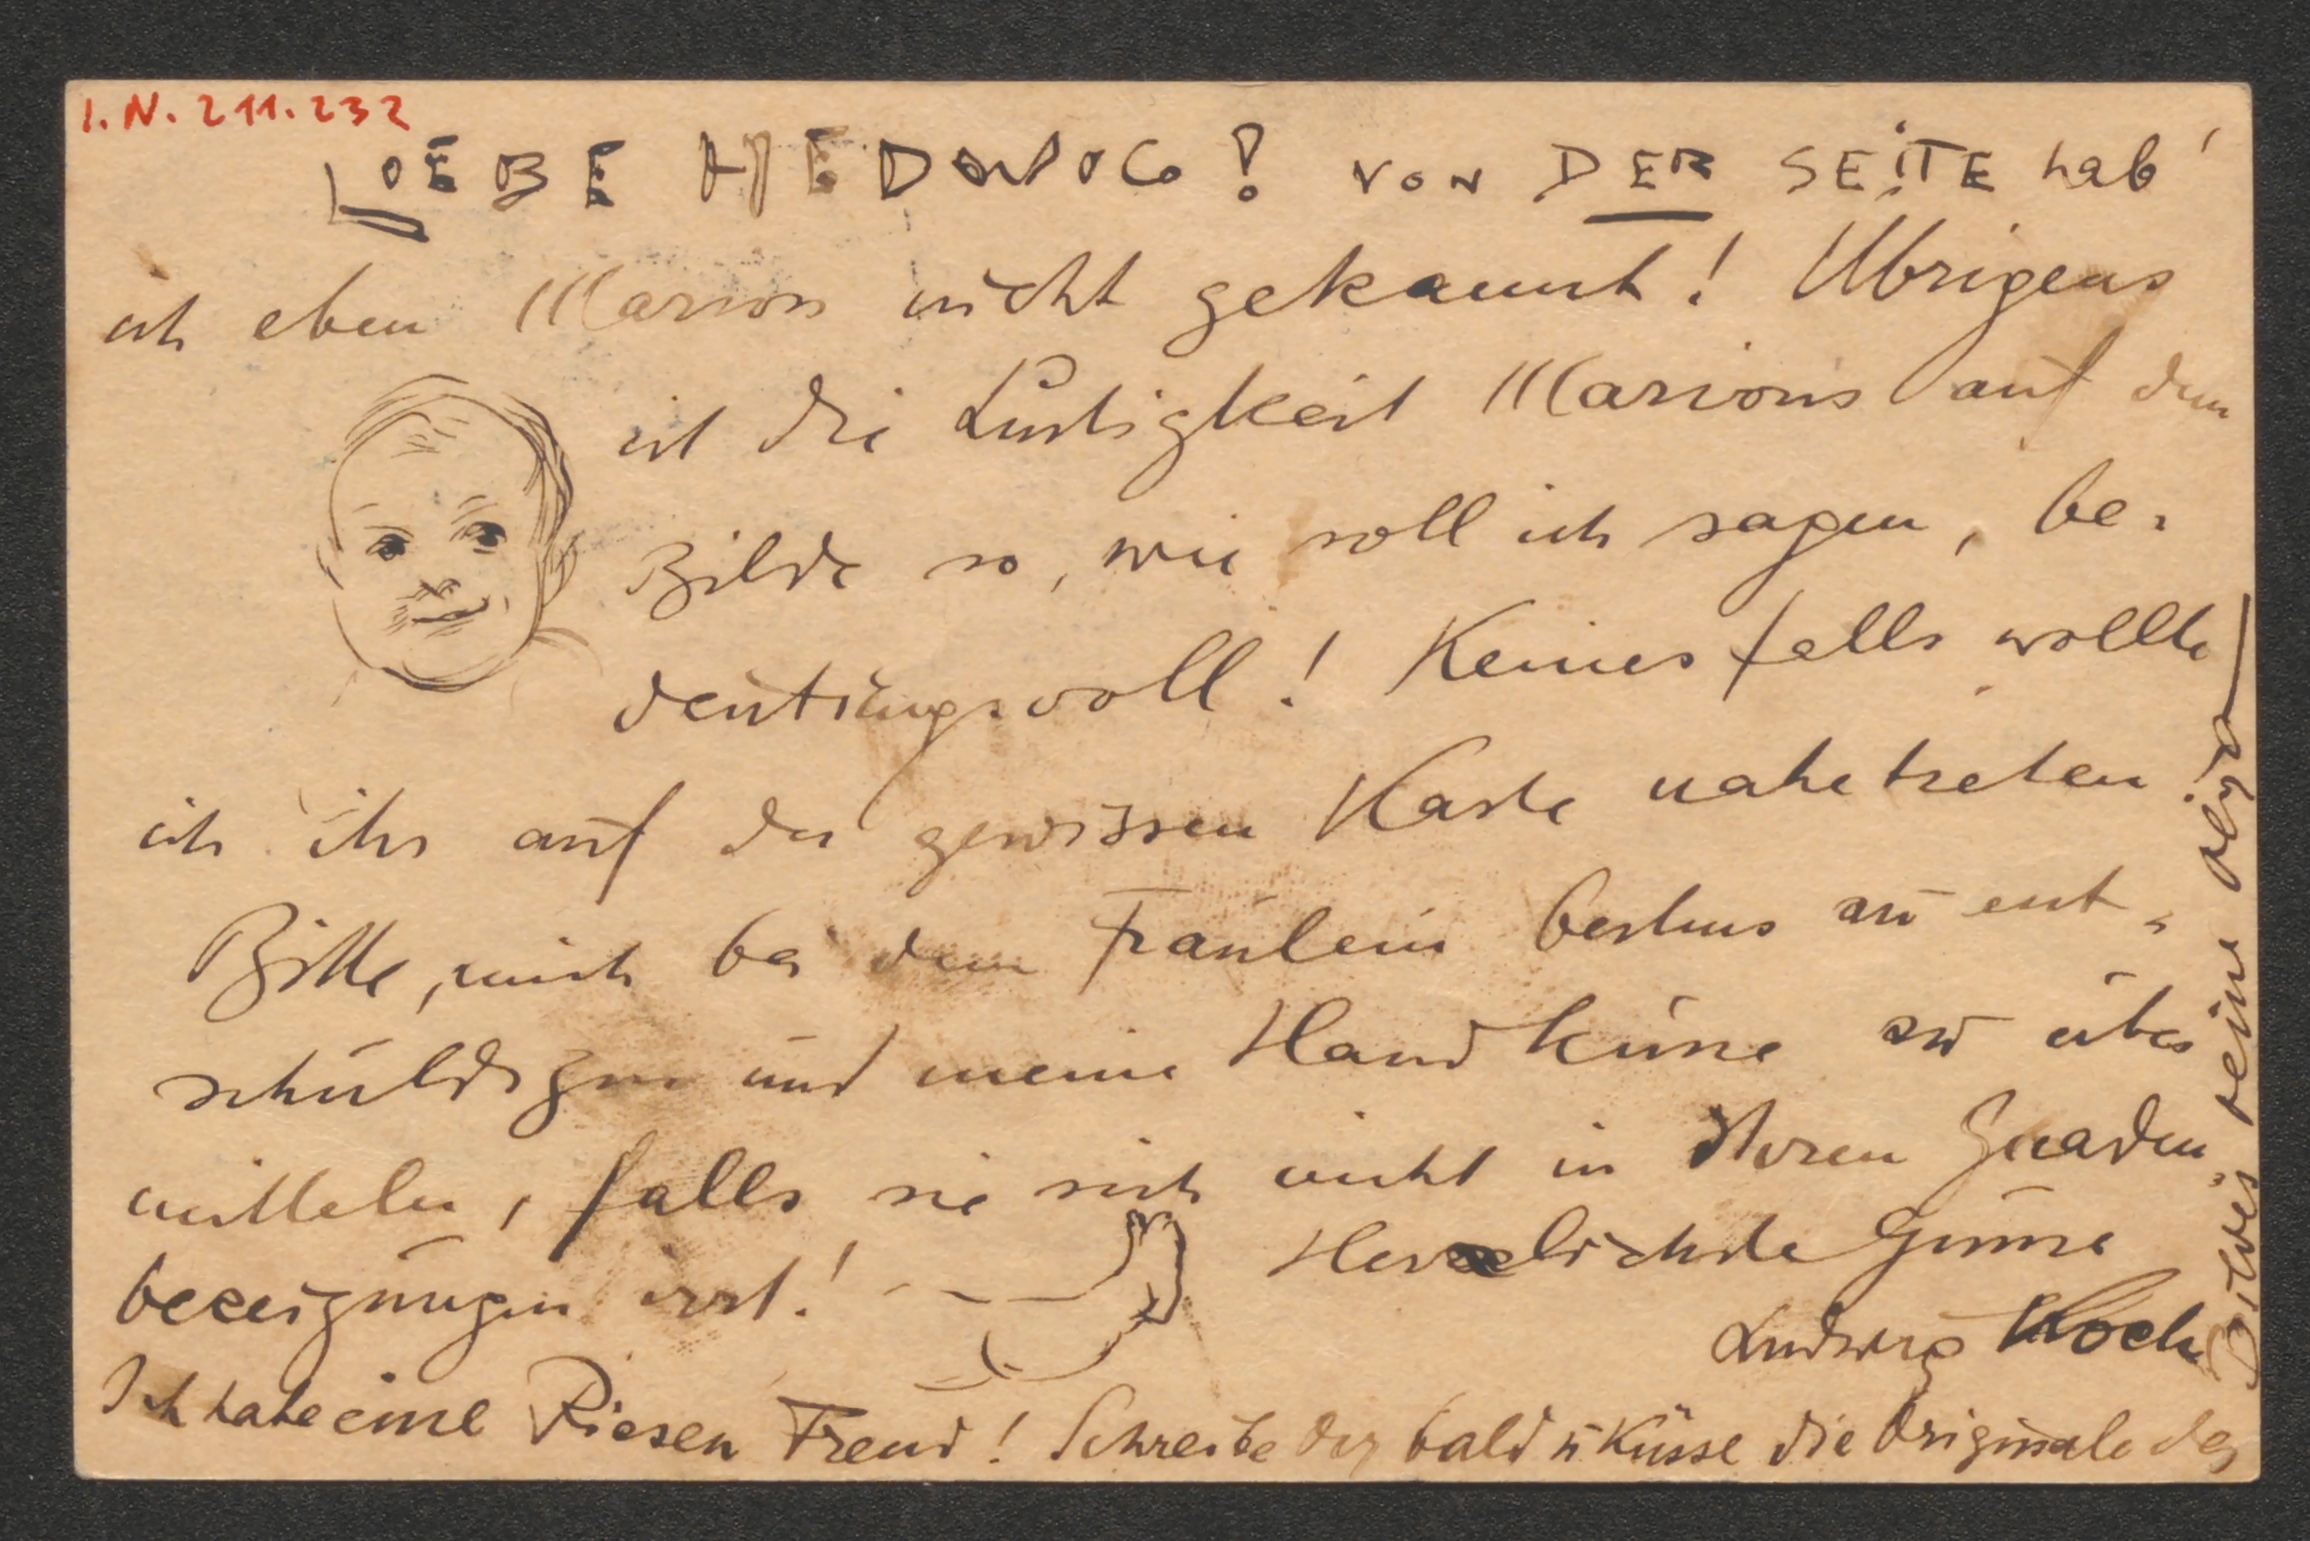 I.N. 211.232
LIEBE HEDWIG! VON DER SEITE hab'
ich eben Marion nicht gekannt! Übrigens
ist die Lustigkeit Marions auf dem
Bilde so, wie soll ich sagen, be-
deutungsvoll! Keinesfalls wollte
ich ihr auf der gewissen Karte nahetreten
Bitte, mich bei dem Fräulein bestens zu ent-
schuldigen und meine Handküsse zu über
mitteln, falls sie sich nicht in Ihren Gnaden-
bezeigungen irrt! Herzlichste Grüsse
Ludwig Koch
Ich habe eine Riesen Freud! Schreibe Dir bald u Küsse die Originale des
Bildes Deine Olga